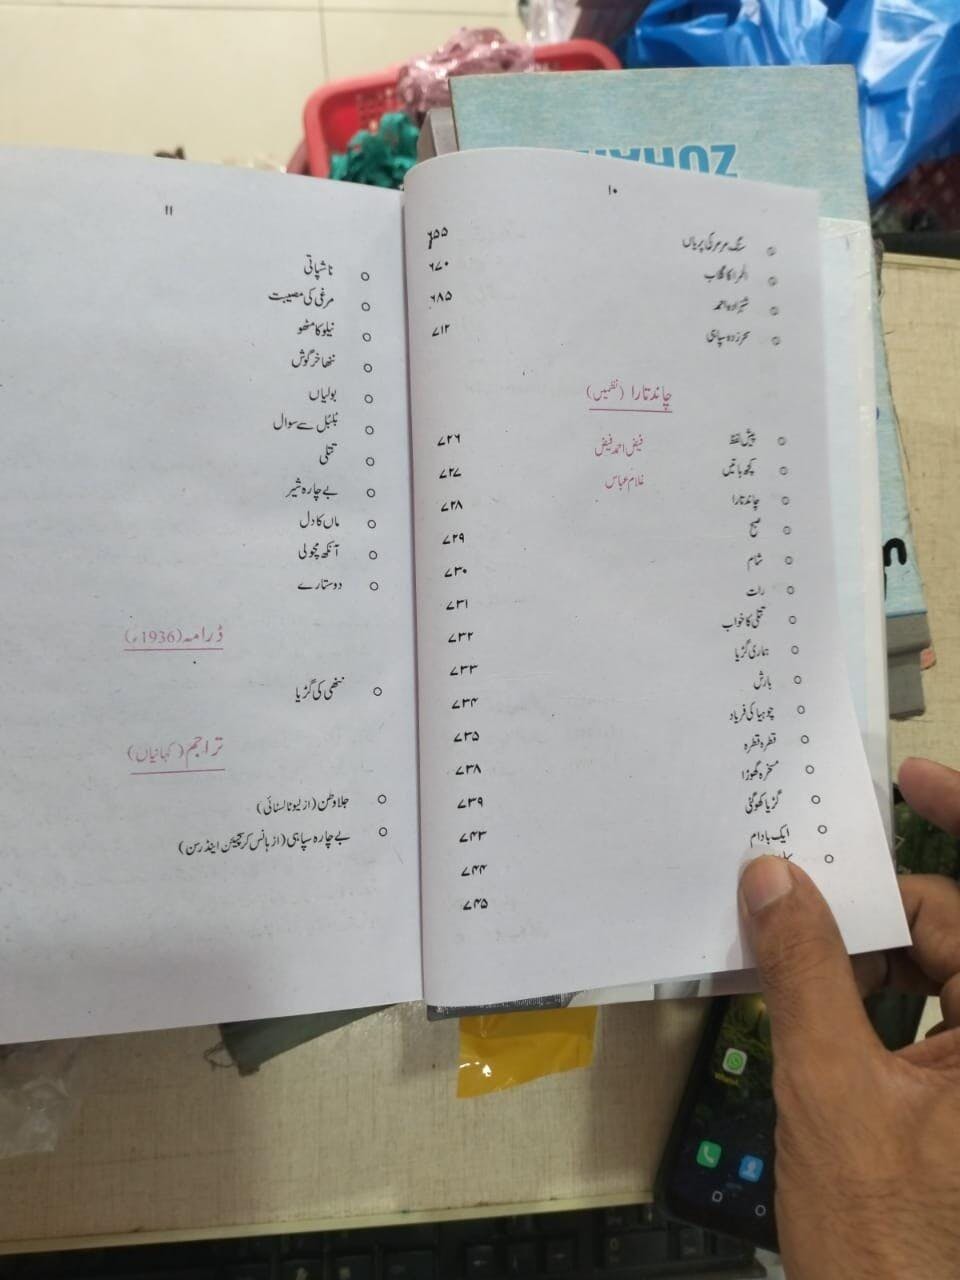 ZOHA
۱۰
سنگ مرمر کی پریاں ۶۵۵
الحمرا کا گلاب ۶۷۰
شہزادہ احمد ۶۸۵
سحر زدہ سپاہی ۷۱۲
چاند تارا (نظمیں)
پیش لفظ فیض احمد فیض ۷۲۶
کچھ باتیں غلام عباس ۷۲۷
چاند تارا ۷۲۸
صبح ۷۲۹
شام ۷۳۰
رات ۷۳۱
تتلی کا خواب ۷۳۲
ہماری گڑیا ۷۳۳
بارش ۷۳۴
چوہیا کی فریاد ۷۳۵
قطرہ قطرہ ۷۳۸
مسخرہ گھوڑا ۷۳۹
گڑیا کھو گئی ۷۴۳
ایک بادام ۷۴۴
۷۴۵
۱۱
ناشپاتی
مرغی کی مصیبت
نیلو کا مٹھو
ننھا خرگوش
بولیاں
بلبل سے سوال
تتلی
بے چارہ شیر
ماں کا دل
آنکھ مچولی
دو ستارے
ڈرامہ (1936ء)
ننھی کی گڑیا
تراجم (کہانیاں)
جلا وطن (از لیو ٹالسٹائی)
بے چارہ سپاہی (از ہانس کرسچیئن اینڈرسن)